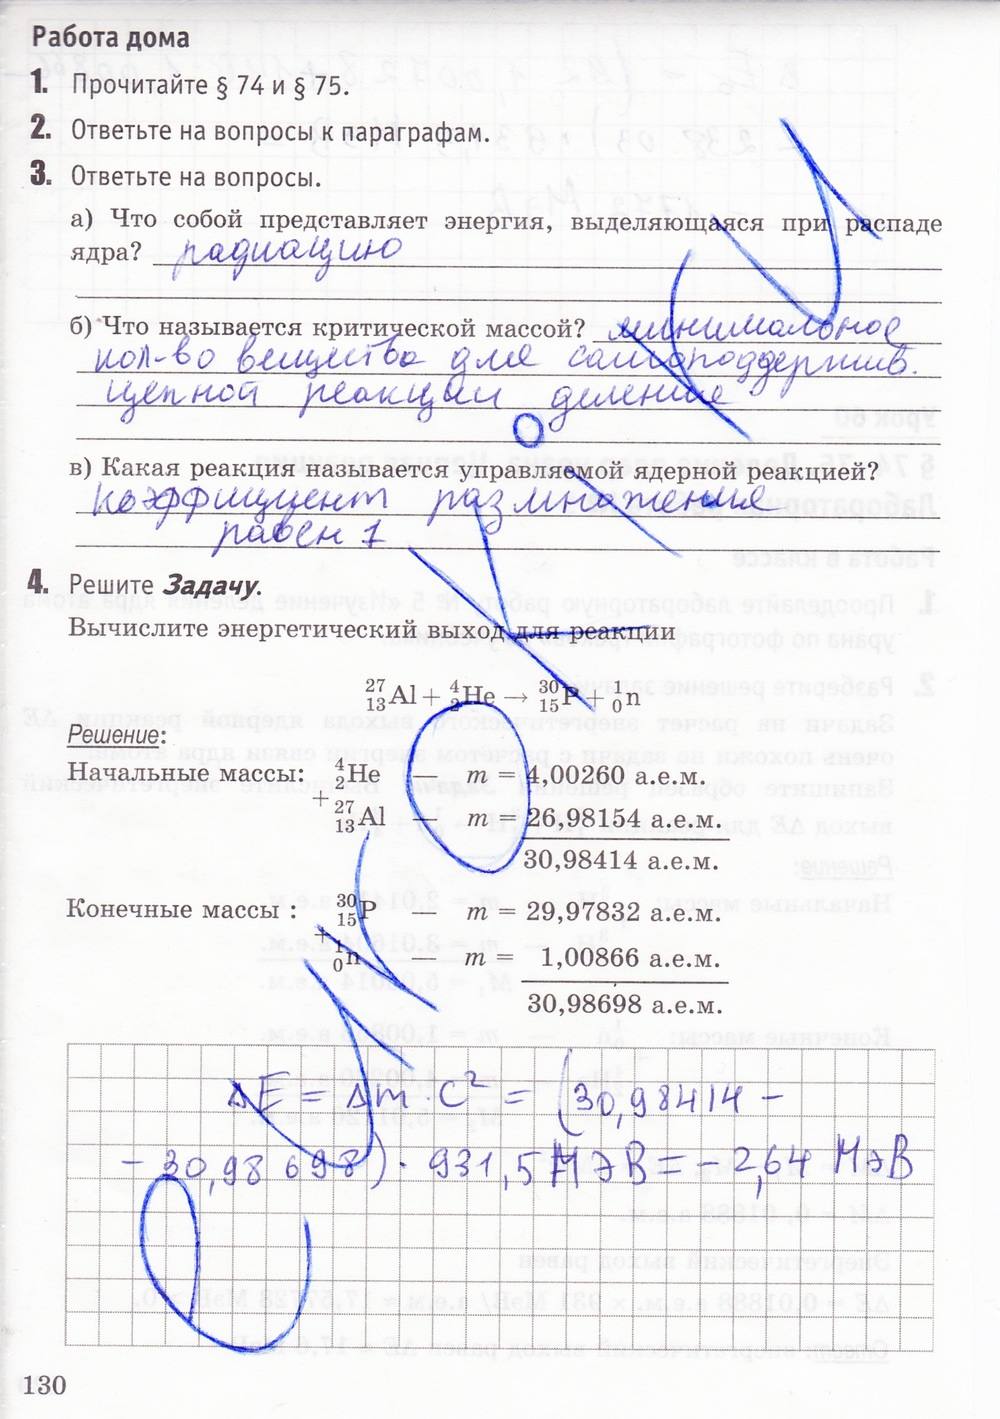 Работа дома
1. Прочитайте § 74 и § 75.
2. Ответьте на вопросы к параграфам.
3. Ответьте на вопросы.
а) Что собой представляет энергия, выделяющаяся при распаде
ядра? радиацию
б) Что называется критической массой? минимальное
кол-во вещества для самоподдержив.
цепной реакции деления
в) Какая реакция называется управляемой ядерной реакцией?
коэффициент размножения
равен 1
4. Решите Задачу.
Вычислите энергетический выход для реакции
²⁷₁₃Al + ⁴₂He → ³⁰₁₅P + ¹₀n
Решение:
Начальные массы: ⁴₂He — m = 4,00260 а.е.м.
+ ²⁷₁₃Al — m = 26,98154 а.е.м.
30,98414 а.е.м.
Конечные массы : ³⁰₁₅P — m = 29,97832 а.е.м.
+ ¹₀n — m = 1,00866 а.е.м.
30,98698 а.е.м.
ΔE = Δm · C² = (30,98414 –
– 30,98698) · 931,5 МэВ = – 2,64 МэВ
130